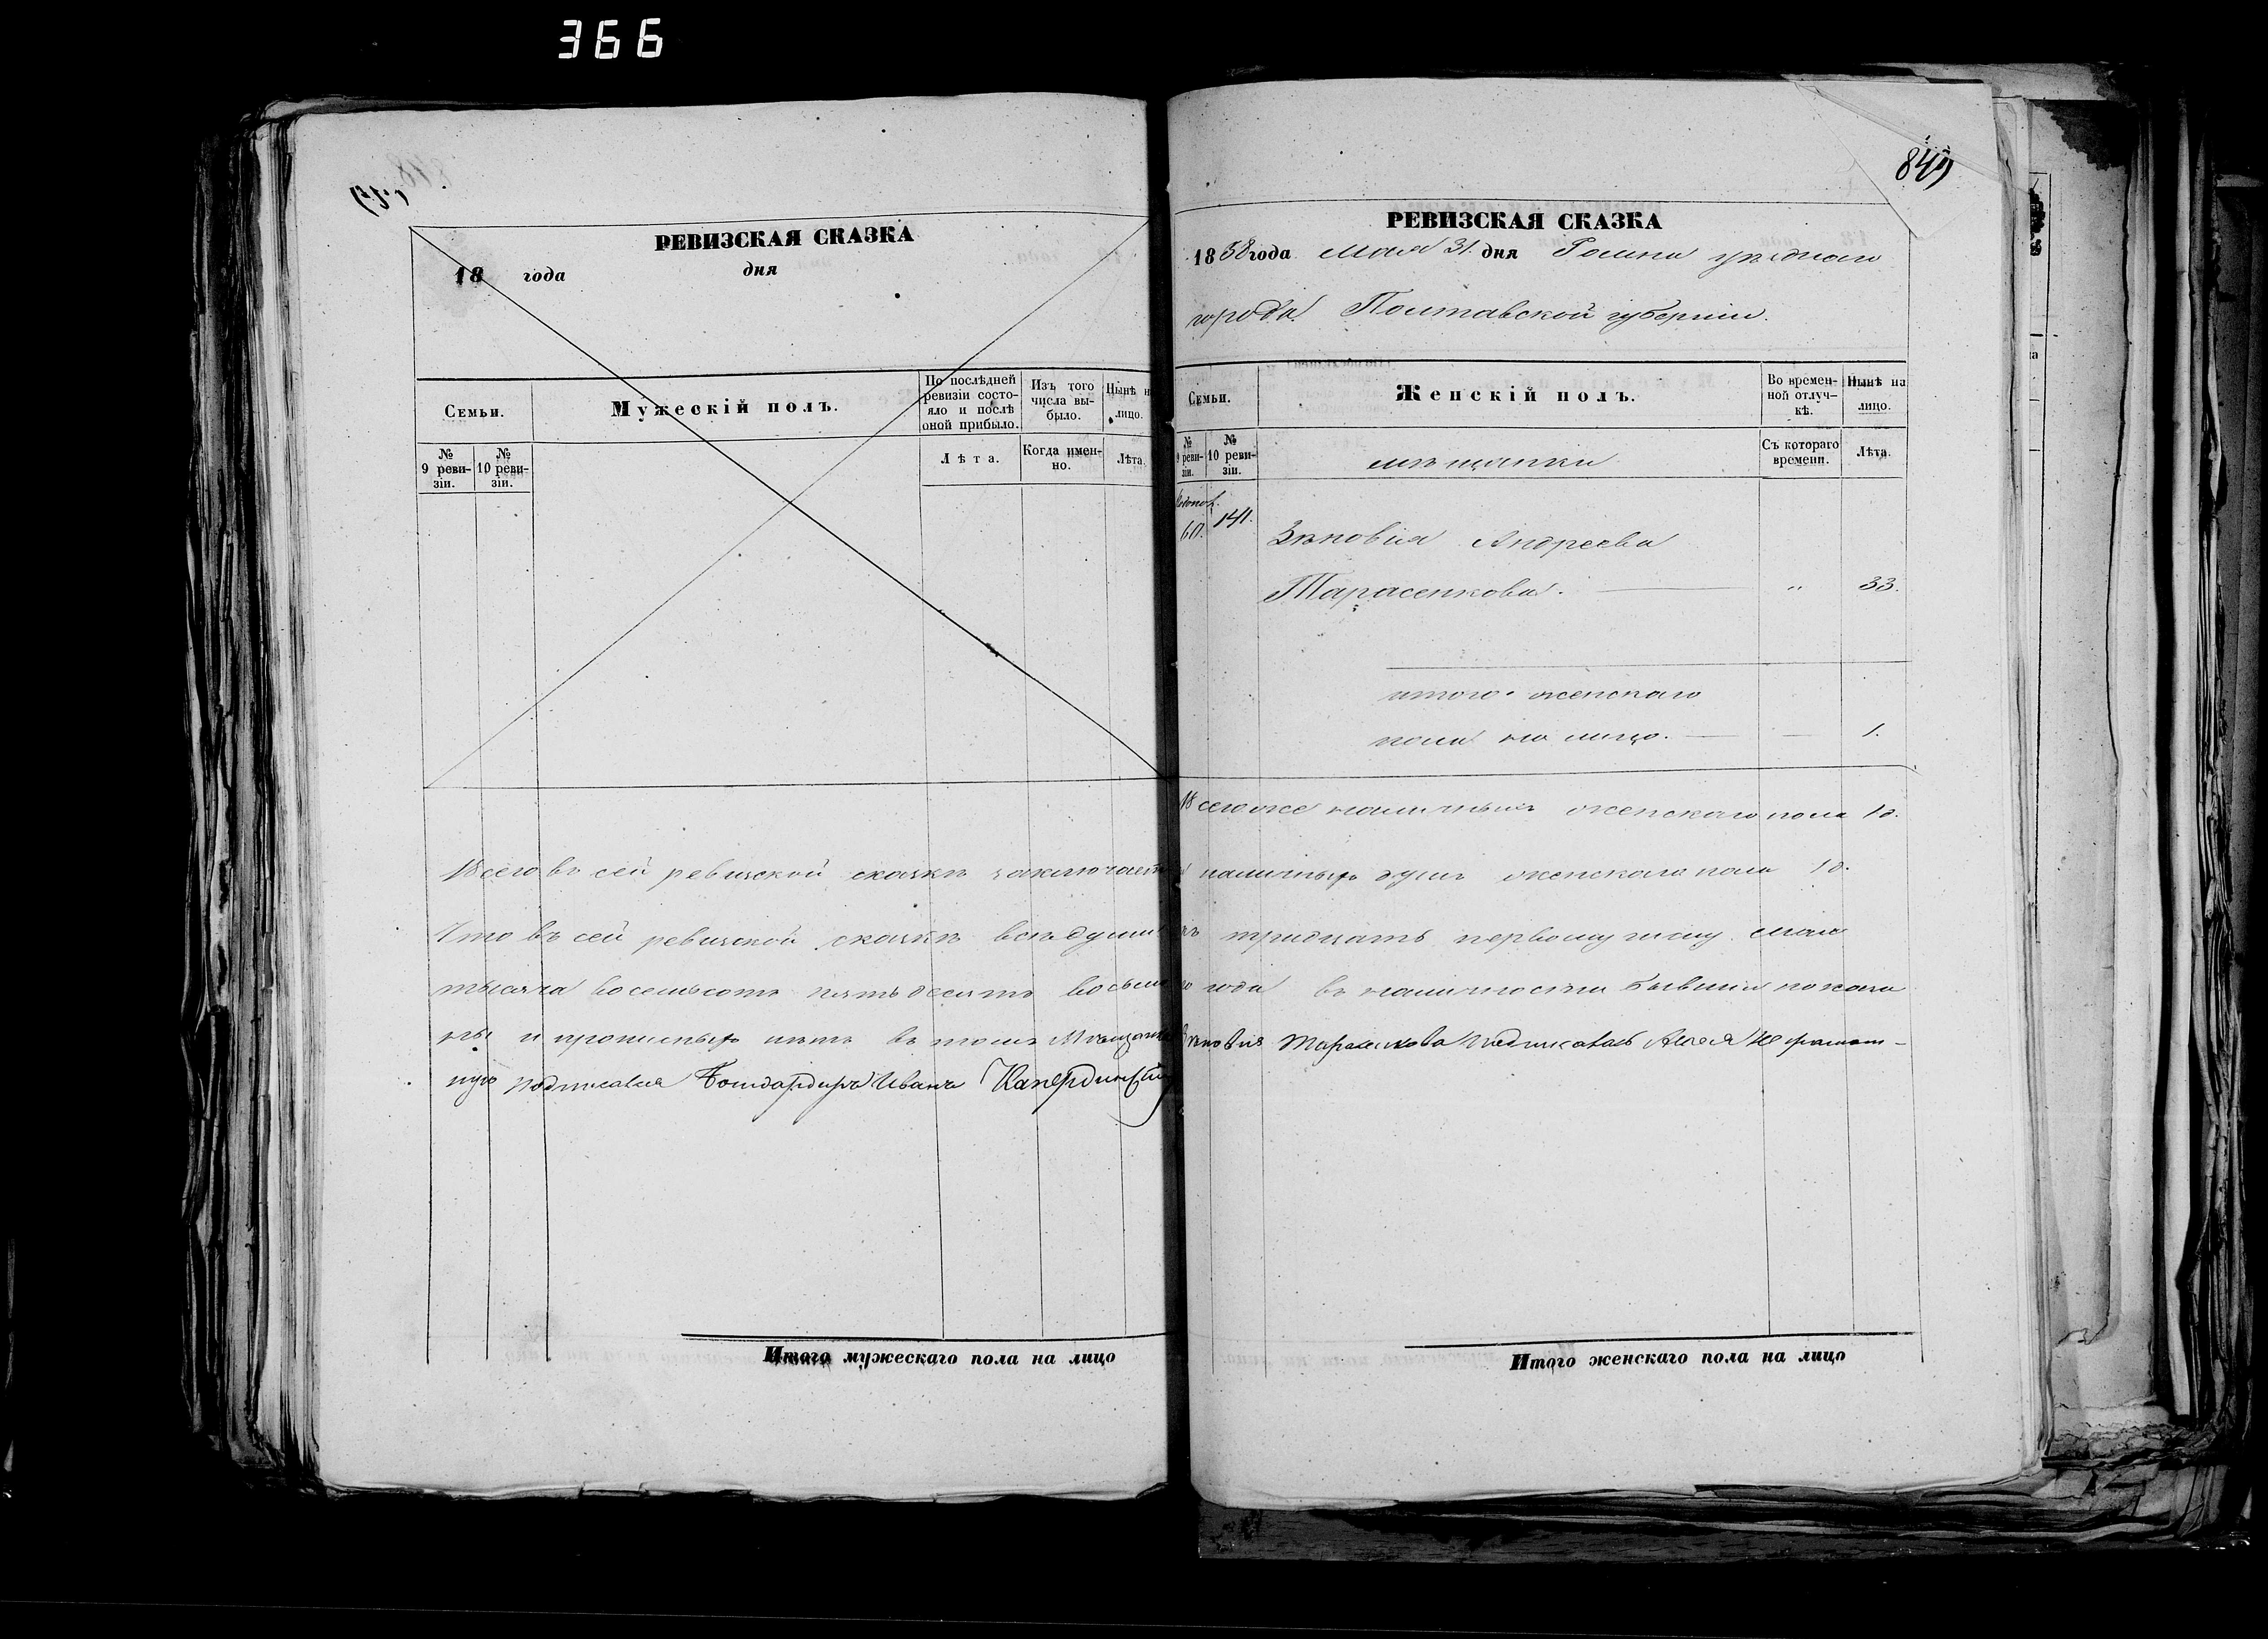 366
849
РЕВИЗСКАЯ СКАЗКА
18 года дня
Семьи.
Мужескій полъ.
По послѣдней ревизіи состояло и послѣ оной прибыло.
Изъ того числа выбыло.
Нынѣ на лицо.
№ 9 ревизіи.
№ 10 ревизіи.
Лѣта.
Когда именно.
Лѣта.
РЕВИЗСКАЯ СКАЗКА
1858 года мая 31. дня Ромна уѣзднаго
города Полтавской губерніи.
Семьи.
Женскій полъ.
Во временной отлучкѣ.
Нынѣ на лицо.
№ 9 ревизіи.
№ 10 ревизіи.
мѣщанки
Съ котораго времени.
Лѣта.
60. 141.
Зѣновія Андреева
Тарасенкова. — „ 33.
итого женскаго
пола на лицо. — — 1.
Всего же наличныхъ женскаго пола 10.
Всего въ сей ревизской сказкѣ заключается наличныхъ душъ женскаго пола 10.
Что въ сей ревизской сказкѣ всѣ души къ тридцать первому числу мая
тысяча восемьсотъ пятьдесятъ восьмаго года въ наличности бывшіе показа
ны и прописныхъ нѣтъ въ томъ Мѣщанка Зѣновія Тарасенкова подписалась А за нея Неграмот-
ную подписался Бомбардиръ Иванъ
Итого мужескаго пола на лицо
Итого женскаго пола на лицо